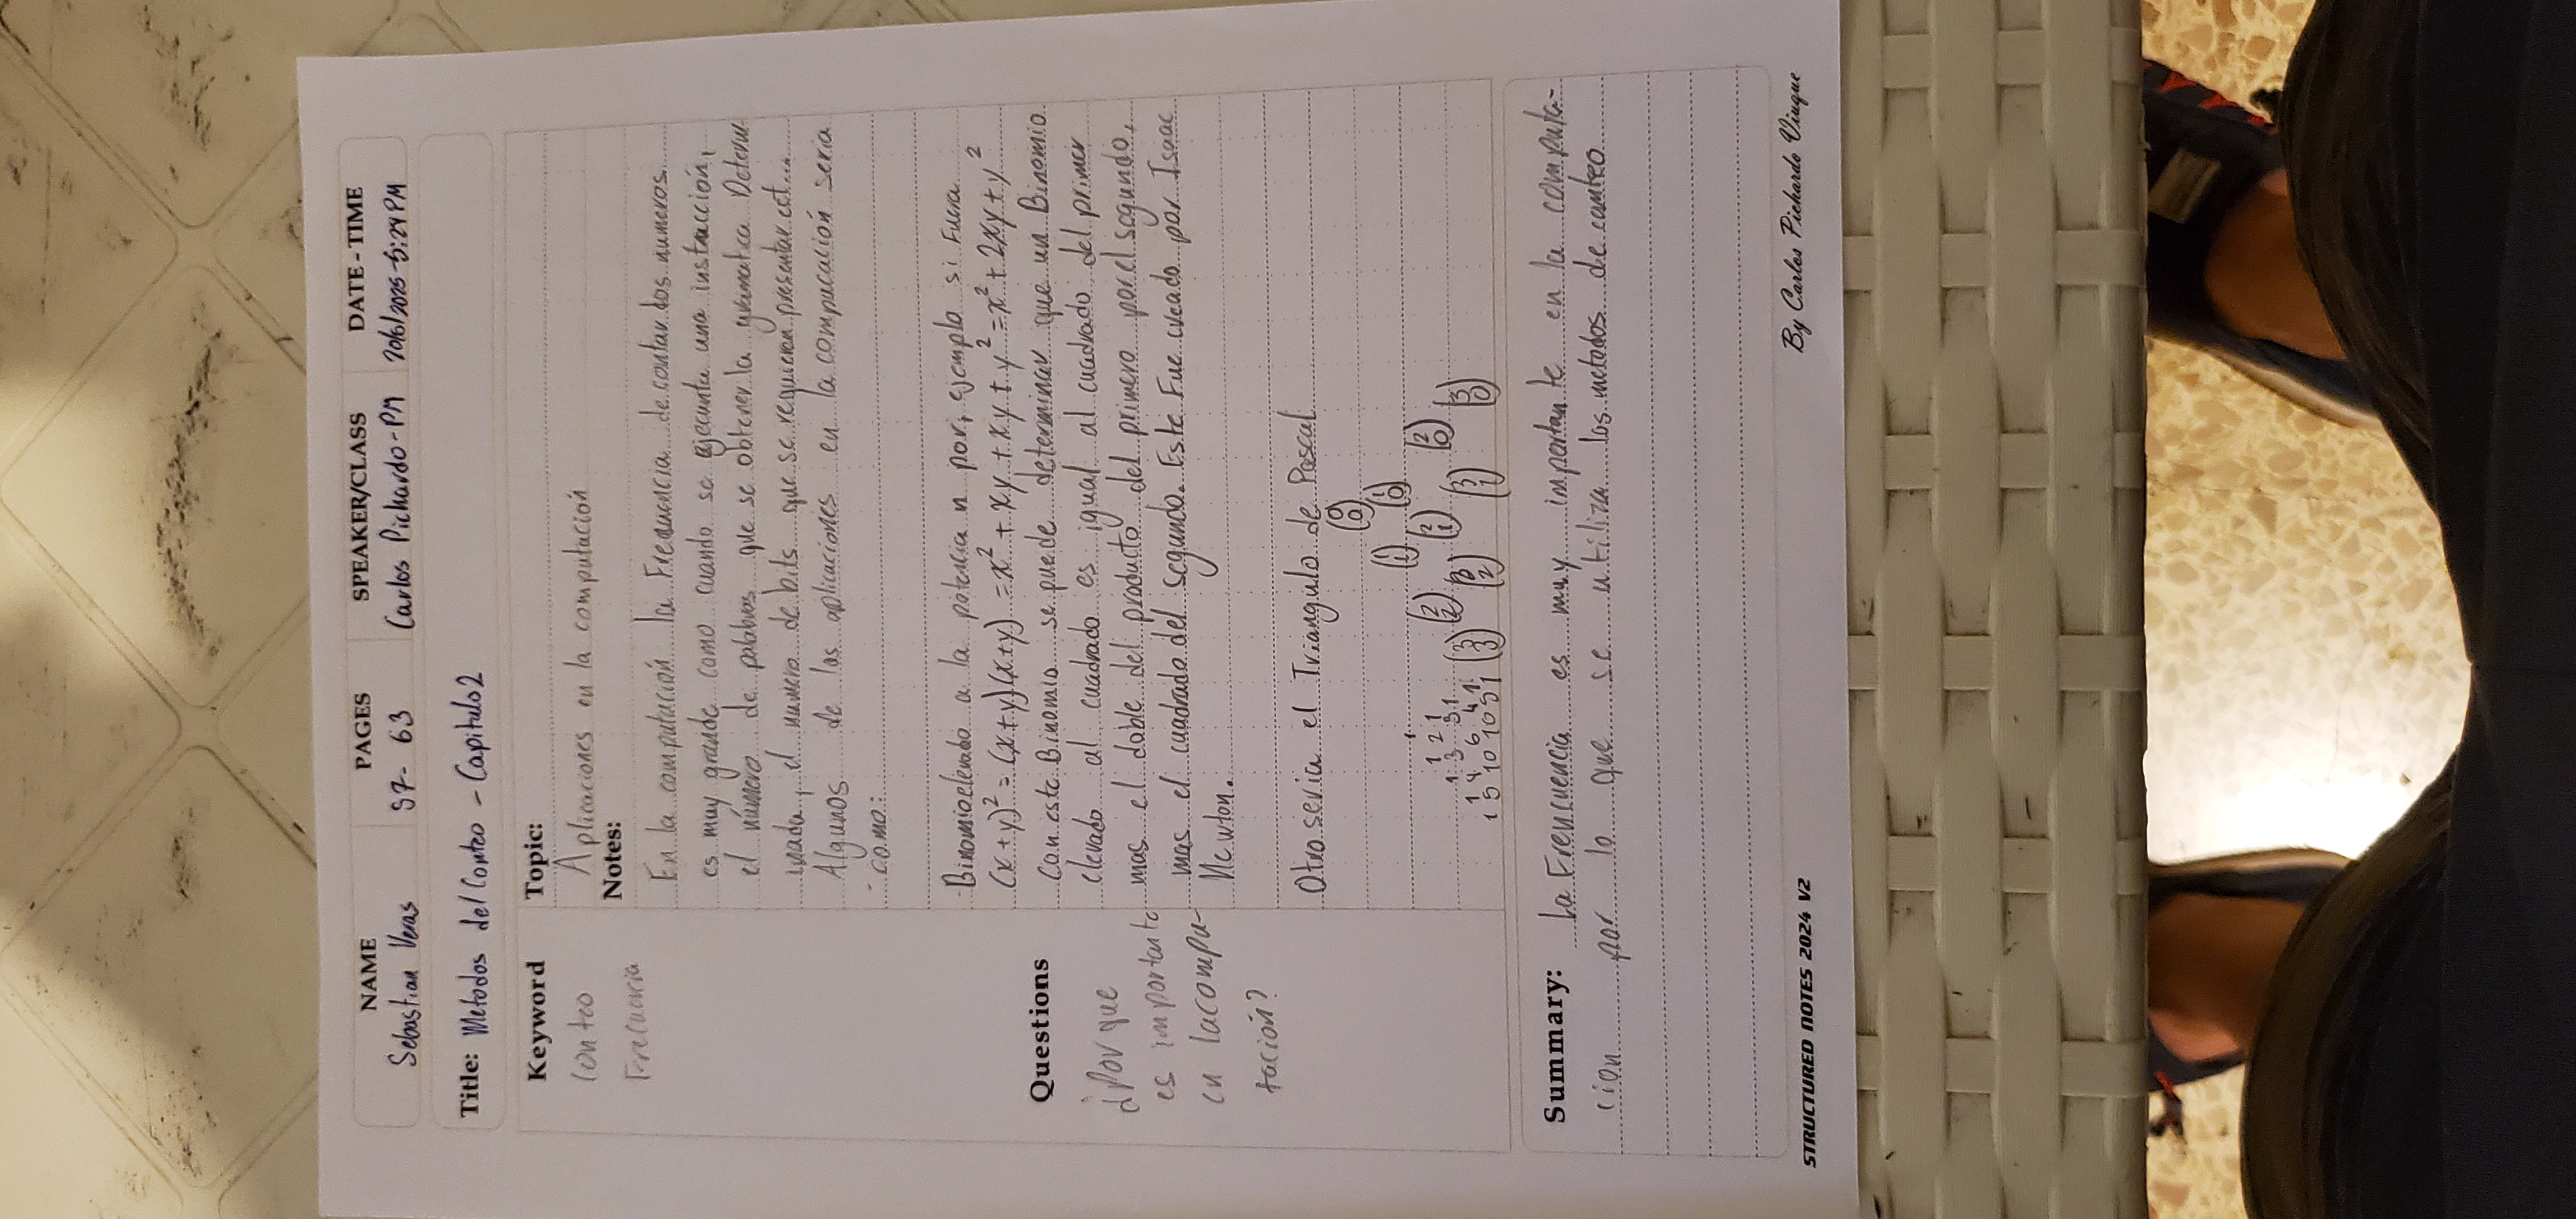 NAME PAGES SPEAKER/CLASS DATE-TIME
Sebastian Veras 57- 63 Carlos Pichardo-PM 20/6/2025-5:24PM
Title: Metodos del Conteo - Capitulo 2
Keyword
Conteo
Frecuencia
Topic:
Aplicaciones en la computación
Notes:
En la computación la Frequencia de contar dos numeros
es muy grande como cuando se ejecunta una instrucción,
el número de palabras que se obtener la gramatica Determi-
inada, el numero de bits que se requieran presentar ect...
Algunos de las aplicaciones en la compucación seria
- como:
-Binomio elevado a la potencia n por, ejemplo si Fuera
(x+y)² = (x+y)(x+y) = x² + xy + xy + y² = x² + 2xy + y²
Con este Binomio se puede determinar que un Binomio
elevado al cuadrado es igual al cuadrado del primer
mas el doble del producto del primero por el segundo,
mas el cuadrado del segundo. Este Fue creado por Isaac
Newton.
Questions
¿Por que
es importante
en la compu-
tación?
Otro seria el Triangulo de Pascal
(0 0)
(1 1) (1 0)
1
1 2 1 (2 2) (2 1) (2 0)
1 3 3 1
1 4 6 4 1 (3 3) (3 2) (3 1) (3 0)
1 5 10 10 5 1
Summary: La Frencuencia es muy importante en la computa-
cion por lo que se utiliza los metodos de conteo
STRUCTURED NOTES 2024 V2
By Carlos Pichardo Viuque